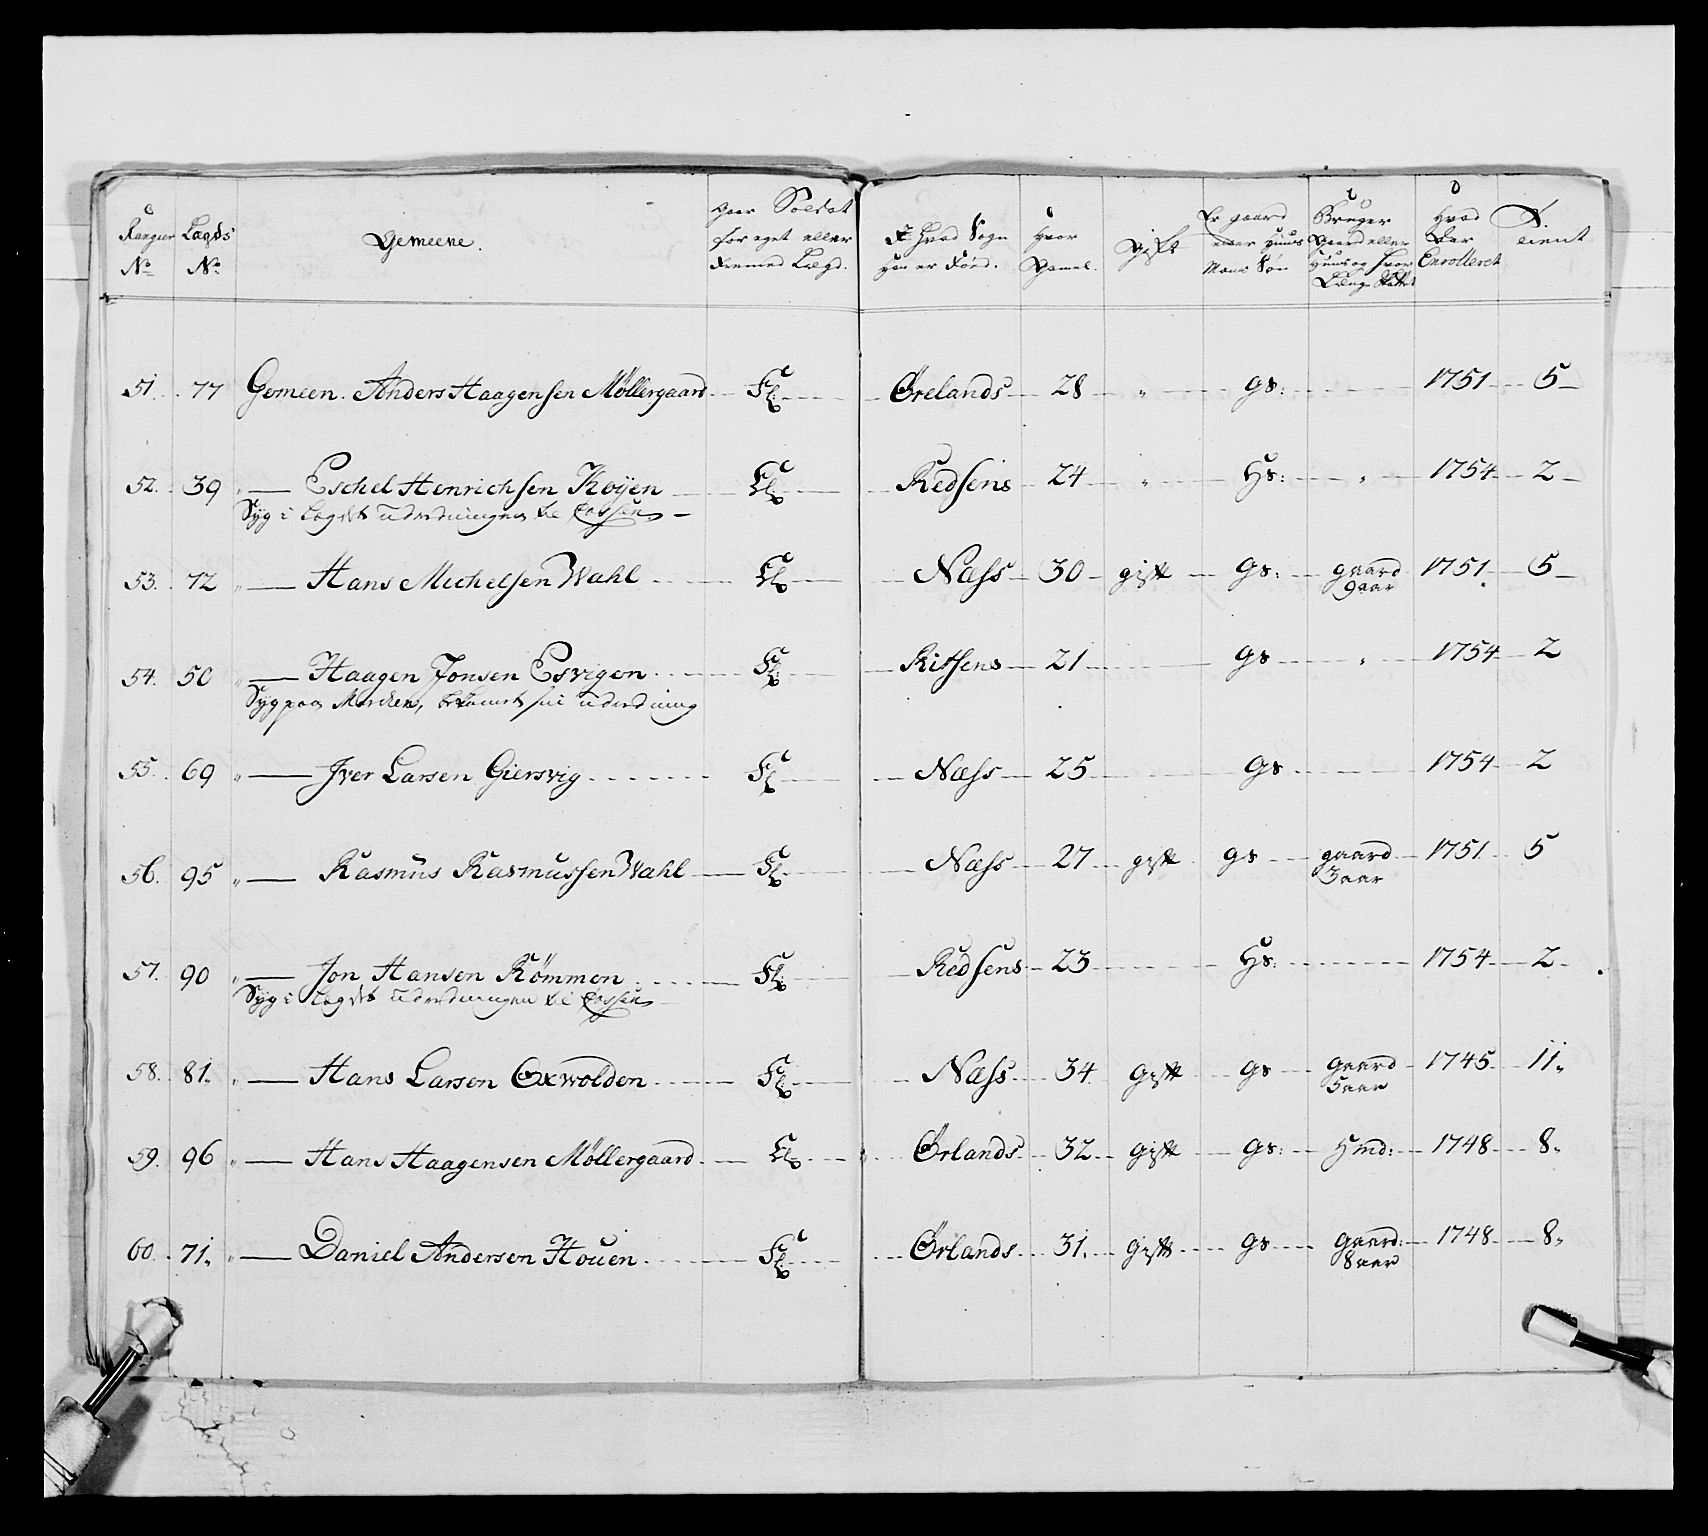 Rangeer No Lægds No Gemeene. Gaar Soldat for eget eller Fremed Lægd. I Hvad Sogn Han er Føed. Hvor Gamel. Gift Er gaard eller Huus Mans Søn Bruger Gaard eller Huus og hvor Længe Hvad Aar Enrolleret Tient
51. 77 Gemeen. Anders Haagensen Møllergaard Fl Ørelands 28 " gs: 1751 5
52. 39 " Eschel Henrichsen Køyen El Redsens 24 " Hs: " 1754 2
Syg i Lægdet udredningen
53. 72 " Hans Michelsen Wahl El Næss 30 gift gs: gaard 9 aar 1751. 5
54. 50 " Haagen Jonsen Esvigen Fl Ritsens 21 gs " 1754 2
Syg paa udredning
55. 69 " Jver Larsen Giersvig Fl Næss 25 gs 1754 2
56. 95 " Rasmus Rasmussen Wahl Fl Næss 27 gift gs gaard 3 aar 1751 5
57. 90 " Jon Hansen Römmen Fl Redsens 23 Hs: 1754 2
Syg i Lægdet udredningen
58. 81. " Hans Larsen Oxwolden Fl Næss 34 Gift gs gaard 5 aar 1745 11"
59. 96 " Hans Haagensen Møllergaard El Ørlands 32 Gift gs: Hmd: 1748 8"
60. 71. " Daniel Andersen Houen Fl Ørlands 31. Gift gs gaard: 8 aar 1748 8"